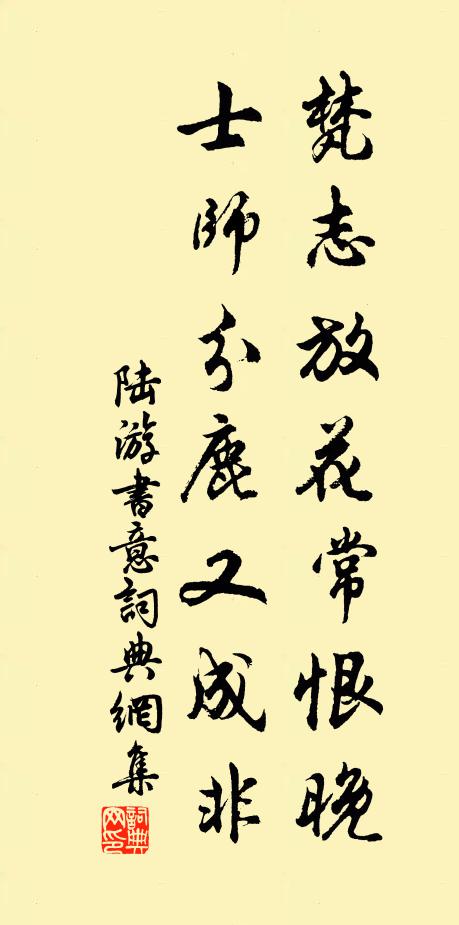 梵志放花常恨晚
士師分鹿又成非
陸游書意詞典網集
詞典網印